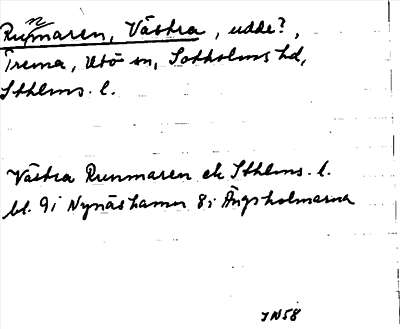 Runmaren, Västra, udde?,
Trema, Utö sn, Sotholms hd,
Sthlms. l.
Västra Runmaren ek Sthlms. l.
bl. 9i Nynäshamn 8i Ängsholmarna
JN58